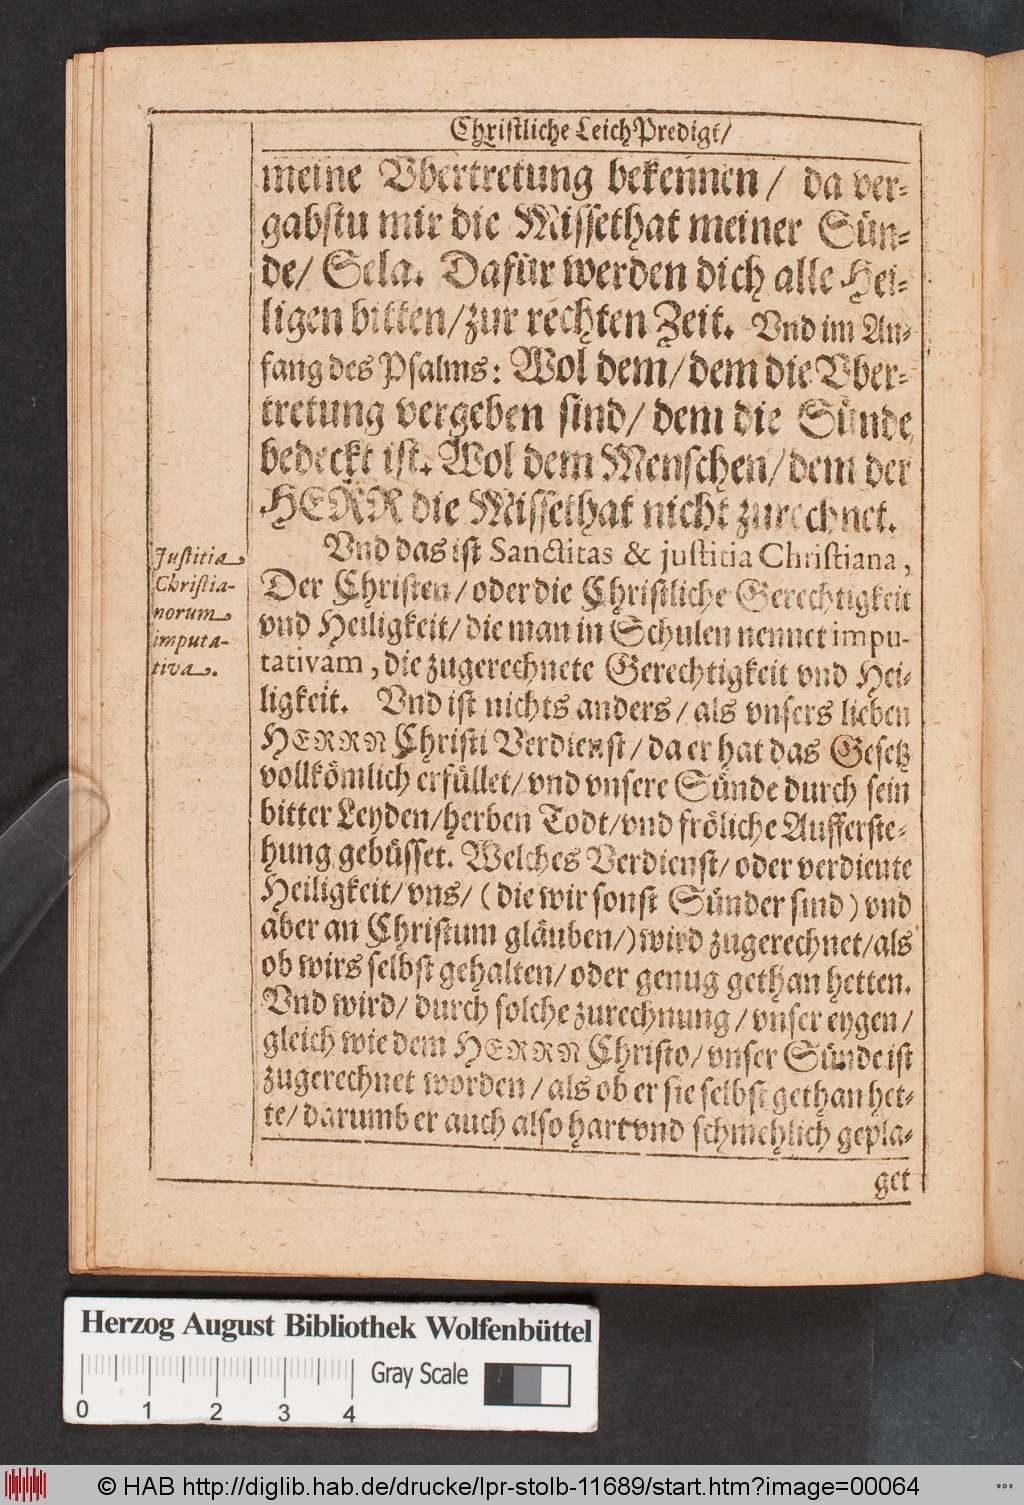 Christliche LeichPredigt/
meine Vbertretung bekennen/ da ver-
gabstu mir die Missethat meiner Sün-
de/ Sela. Dafür werden dich alle Hei-
ligen bitten/ zur rechten Zeit. Vnd im An-
fang des Psalms: Wol dem/ dem die Vber-
tretung vergeben sind/ dem die Sünde
bedeckt ist. Wol dem Menschen/ dem der
HERR die Missethat nicht zurechnet.
Vnd das ist Sanctitas & justitia Christiana,
Der Christen/ oder die Christliche Gerechtigkeit
vnd Heiligkeit/ die man in Schulen nennet impu-
tativam, die zugerechnete Gerechtigkeit vnd Hei-
ligkeit. Vnd ist nichts anders/ als vnsers lieben
HERRN Christi Verdienst/ da er hat das Gesetz
vollkömlich erfüllet/ vnd vnsere Sünde durch sein
bitter Leyden/ herben Todt/ vnd fröliche Aufferste-
hung gebüsset. Welches Verdienst/ oder verdiente
Heiligkeit/ vns/ (die wir sonst Sünder sind) vnd
aber an Christum gläuben/) wird zugerechnet/ als
ob wirs selbst gehalten/ oder genug gethan hetten.
Vnd wird/ durch solche zurechnung/ vnser eygen/
gleich wie dem HERRN Christo/ vnser Sünde ist
zugerechnet worden/ als ob er sie selbst gethan het-
te/ darumb er auch also hart vnd schmehlich gepla-
get
Justitia
Christia-
norum
imputa-
tiva.
Herzog August Bibliothek Wolfenbüttel
Gray Scale
0 1 2 3 4
© HAB http://diglib.hab.de/drucke/lpr-stolb-11689/start.htm?image=00064